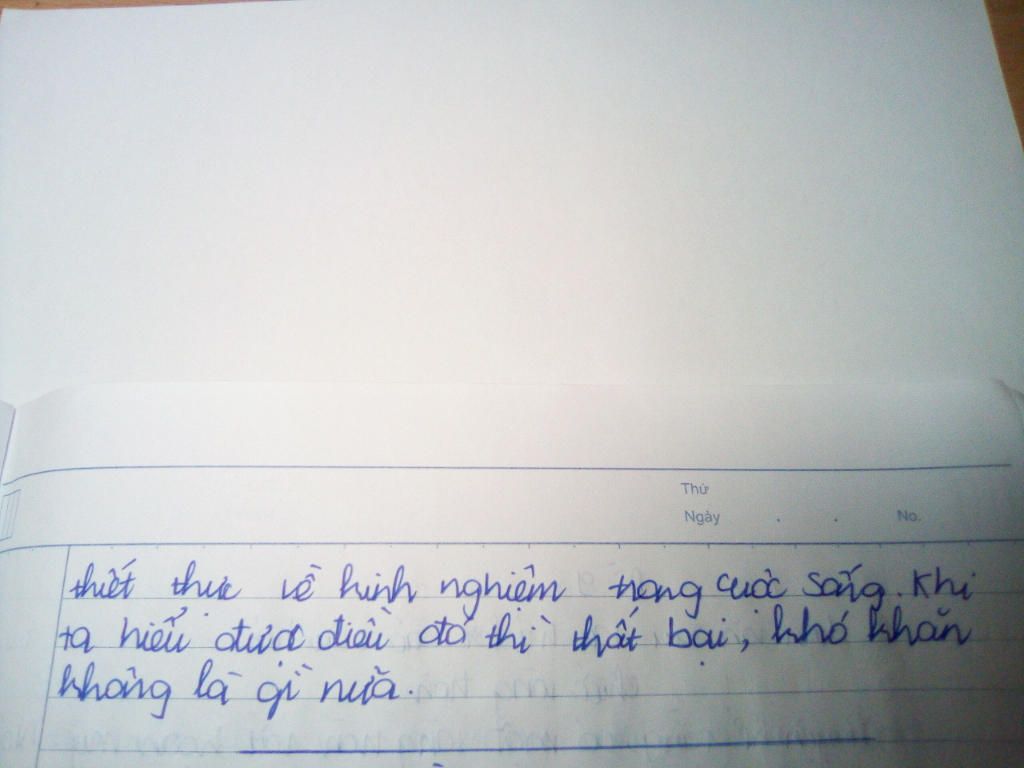 Thứ
Ngày . . No.
thiết thực về kinh nghiệm trong cuộc sống. Khi
ta hiểu được điều đó thì thất bại, khó khăn
không là gì nữa.